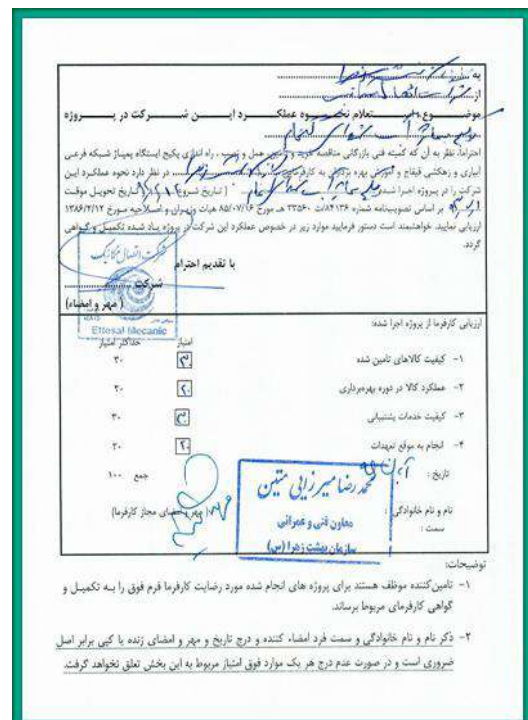 به
از
موضوع : استعلام نحوه عملکرد این شرکت در پروژه
احتراما، نظر به آن که کمیته فنی بازرگانی مناقصه خرید و تامین، حمل و نصب ، راه اندازی پکیج ایستگاه پمپاژ شبکه فرعی
آبیاری و زهکشی فیفاج و آموزش بهره برداری به کارفرما در نظر دارد نحوه عملکرد این
شرکت را در پروژه اجرا شده ( تاریخ شروع تاریخ تحویل موقت
بر اساس تصویبنامه شماره ۸۴۱۳۶/ت ۳۳۵۶۰ هـ مورخ ۸۵/۰۷/۱۶ هیات وزیران و اصلاحیه مورخ ۱۳۸۶/۲/۱۲
ارزیابی نمایید. خواهشمند است دستور فرمایید موارد زیر در خصوص عملکرد این شرکت در پروژه یاد شده تکمیل و گواهی
گردد.
با تقدیم احترام
شرکت
( مهر و امضاء)
شرکت اتصال مکانیک
Ettesal Mecanic
ارزیابی کارفرما از پروژه اجرا شده:
امتیاز حداکثر امتیاز
۱- کیفیت کالاهای تامین شده ۳۰ ۳۰
۲- عملکرد کالا در دوره بهره‌برداری ۲۰ ۲۰
۳- کیفیت خدمات پشتیبانی ۳۰ ۳۰
۴- انجام به موقع تعهدات ۲۰ ۲۰
تاریخ : جمع ۱۰۰
نام و نام خانوادگی : ( مهر و امضای مجاز کارفرما)
سمت :
محمدرضا میرزایی متین
معاون فنی و عمرانی
سازمان بهشت زهرا (س)
توضیحات:
۱- تامین کننده موظف هستند برای پروژه های انجام شده مورد رضایت کارفرما فرم فوق را به تکمیل و
گواهی کارفرمای مربوط برساند.
۲- ذکر نام و نام خانوادگی و سمت فرد امضاء کننده و درج تاریخ و مهر و امضای زنده یا کپی برابر اصل
ضروری است و در صورت عدم درج هر یک موارد فوق امتیاز مربوط به این بخش تعلق نخواهد گرفت.